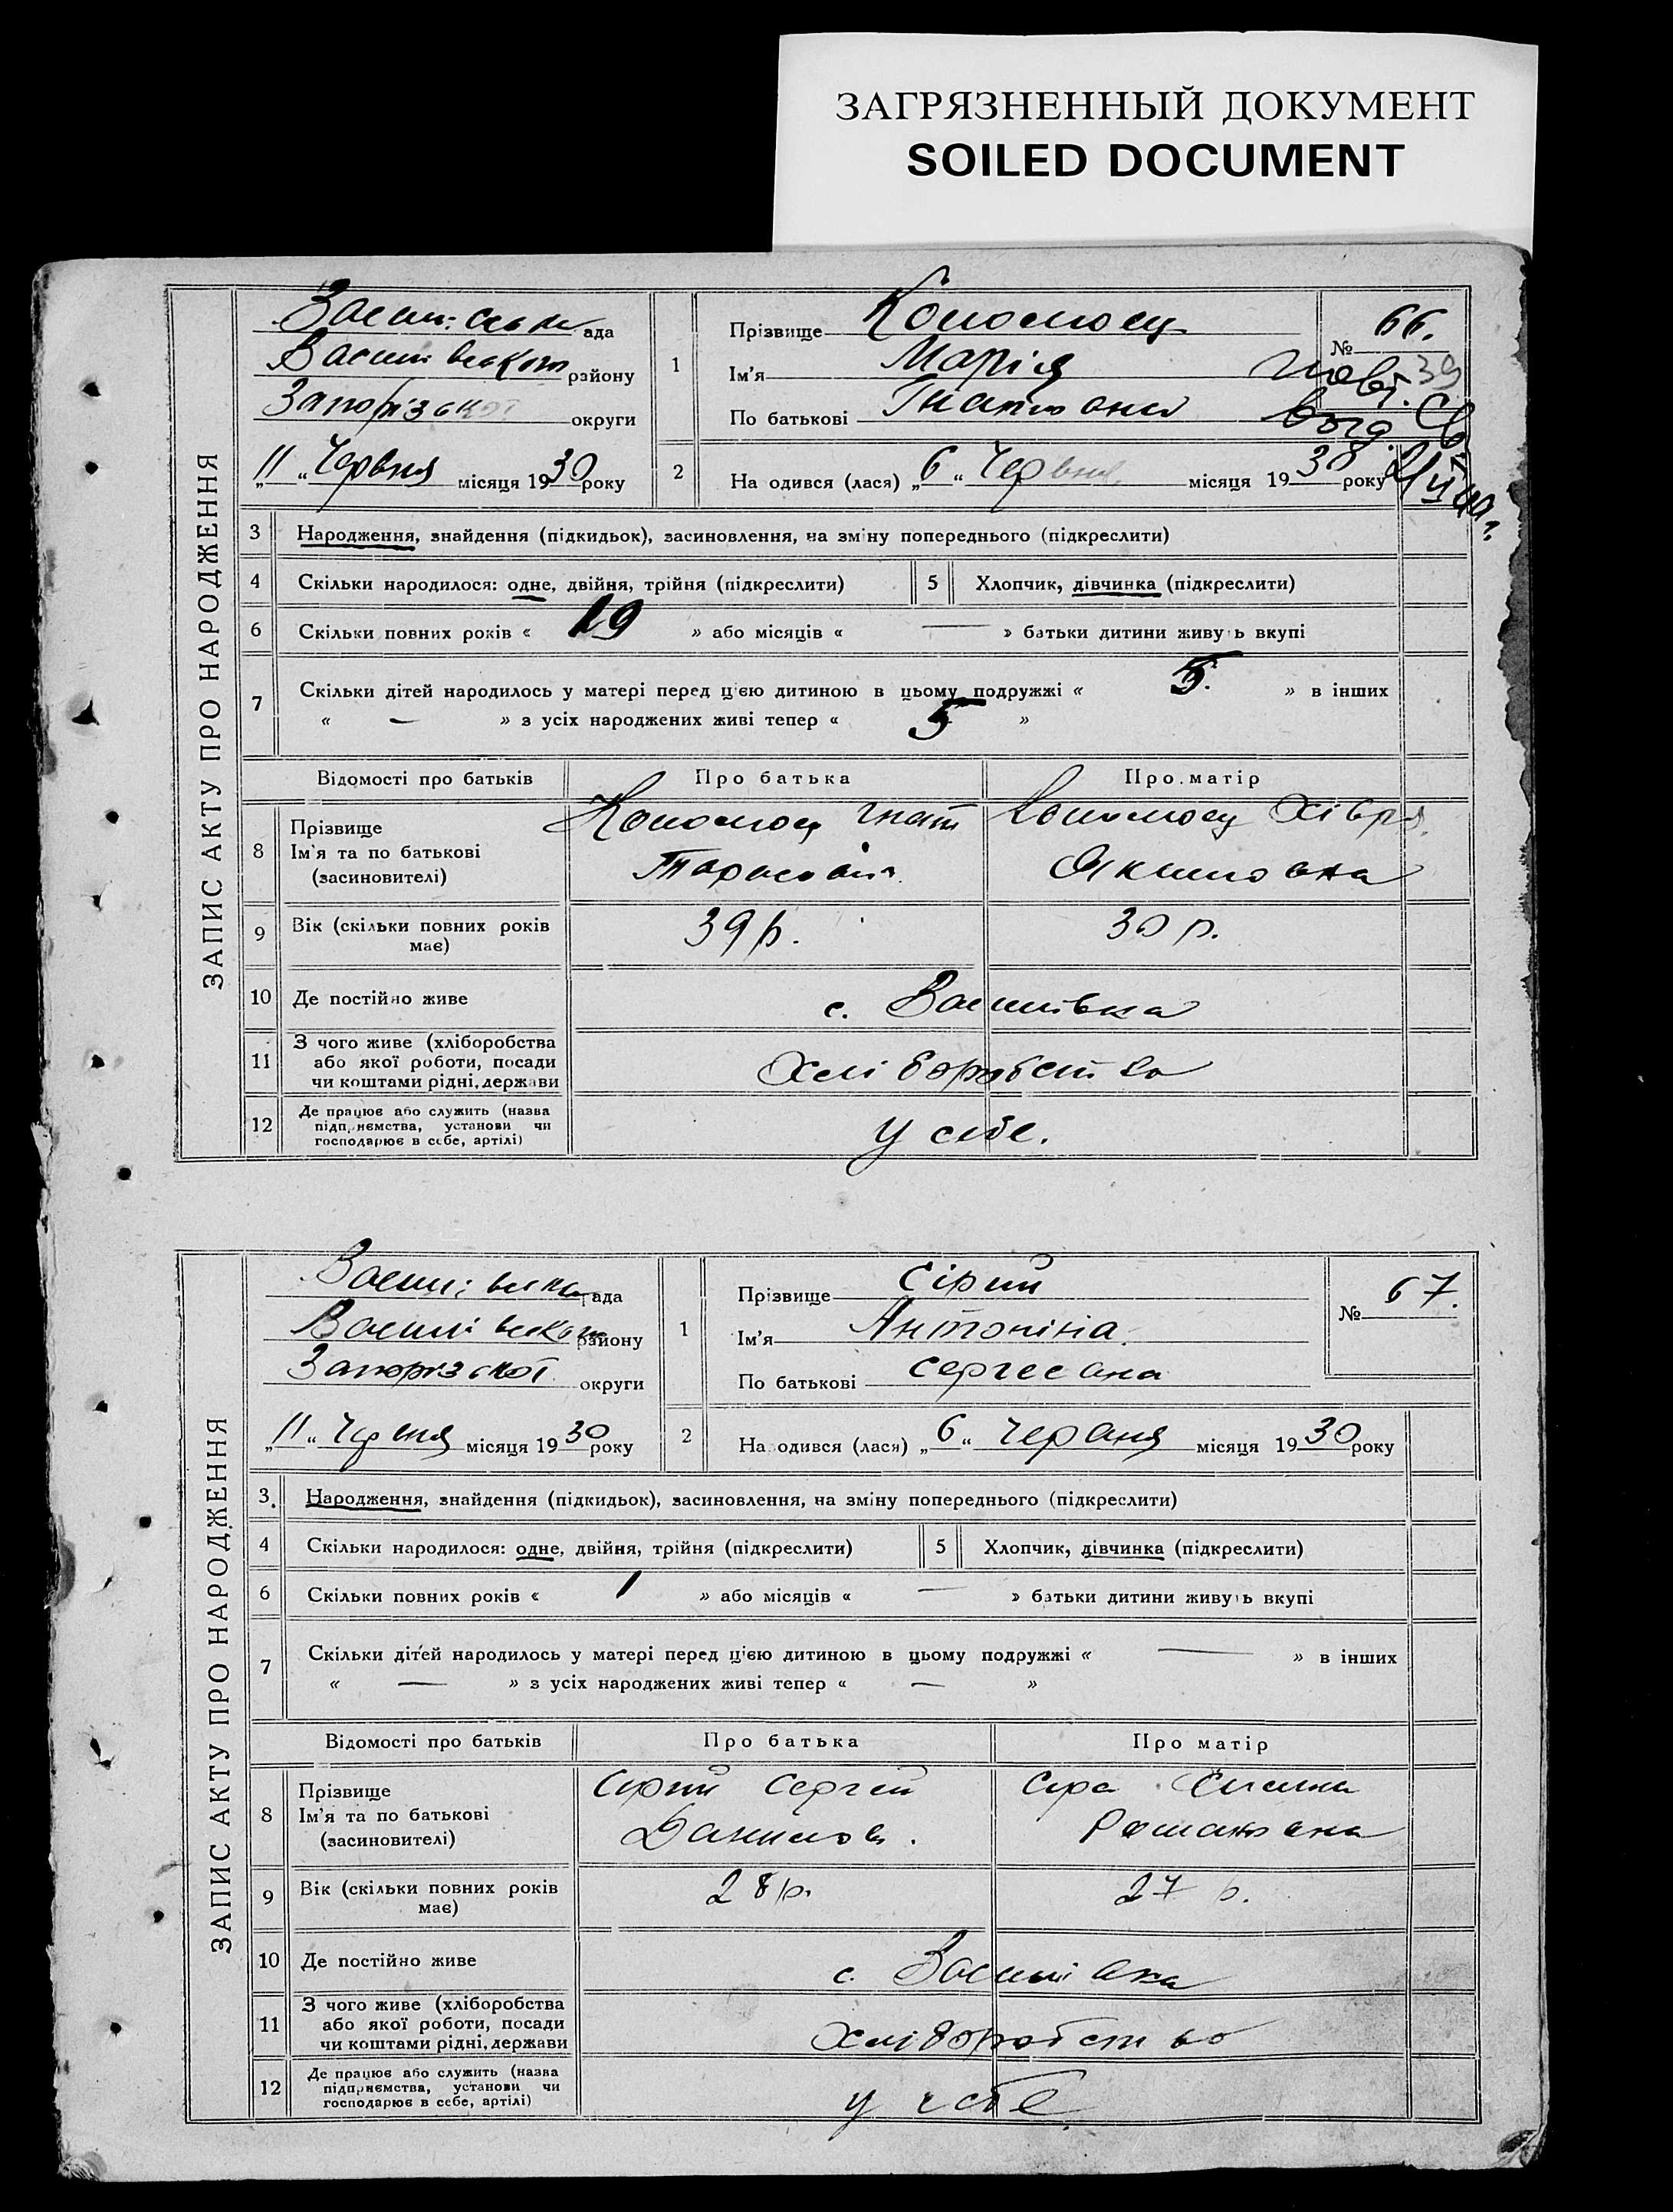 ЗАГРЯЗНЕННЫЙ ДОКУМЕНТ
SOILED DOCUMENT
ЗАПИС АКТУ ПРО НАРОДЖЕННЯ
ада
району
Запорізької округи
„11“ Червня місяця 1930 року
1 Прізвище Кономоец
Ім'я Марія
По батькові Гнатовна
№ 66.
39
2 На одився (лася) „6“ Червня місяця 1930 року
3 Народження, знайдення (підкидьок), засиновлення, на зміну попереднього (підкреслити)
4 Скільки народилося: одне, двійня, трійня (підкреслити) 5 Хлопчик, дівчинка (підкреслити)
6 Скільки повних років « 19 » або місяців « — » батьки дитини живуть вкупі
7 Скільки дітей народилось у матері перед цією дитиною в цьому подружжі « 5. » в інших
« — » з усіх народжених живі тепер « 5 »
Відомості про батьків Про батька Про матір
8 Прізвище
Ім'я та по батькові
(засиновителі)
Гнат
Хівря
Якимовна
9 Вік (скільки повних років має) 39 р. 30 р.
10 Де постійно живе с. Василівка
11 З чого живе (хліборобства
або якої роботи, посади
чи коштами рідні, держави
хліборобство
12 Де працює або служить (назва
підприємства, установи чи
господарює в себе, артілі)
у себе.
ЗАПИС АКТУ ПРО НАРОДЖЕННЯ
рада
району
Запорізької округи
„11“ Червня місяця 1930 року
1 Прізвище Сірий
Ім'я Антоніна
По батькові Сергеевна
№ 67.
2 На одився (лася) „6“ Червня місяця 1930 року
3. Народження, знайдення (підкидьок), засиновлення, на зміну попереднього (підкреслити)
4 Скільки народилося: одне, двійня, трійня (підкреслити) 5 Хлопчик, дівчинка (підкреслити)
6 Скільки повних років « 1 » або місяців « — » батьки дитини живуть вкупі
7 Скільки дітей народилось у матері перед цією дитиною в цьому подружжі « — » в інших
« — » з усіх народжених живі тепер « — »
Відомості про батьків Про батька Про матір
8 Прізвище
Ім'я та по батькові
(засиновителі)
Сірий Сергей
Данилов.
Сіра
Романовна
9 Вік (скільки повних років має) 28 р. 27 р.
10 Де постійно живе с. Василівка
11 З чого живе (хліборобства
або якої роботи, посади
чи коштами рідні, держави
хліборобство
12 Де працює або служить (назва
підприємства, установи чи
господарює в себе, артілі)
у себе